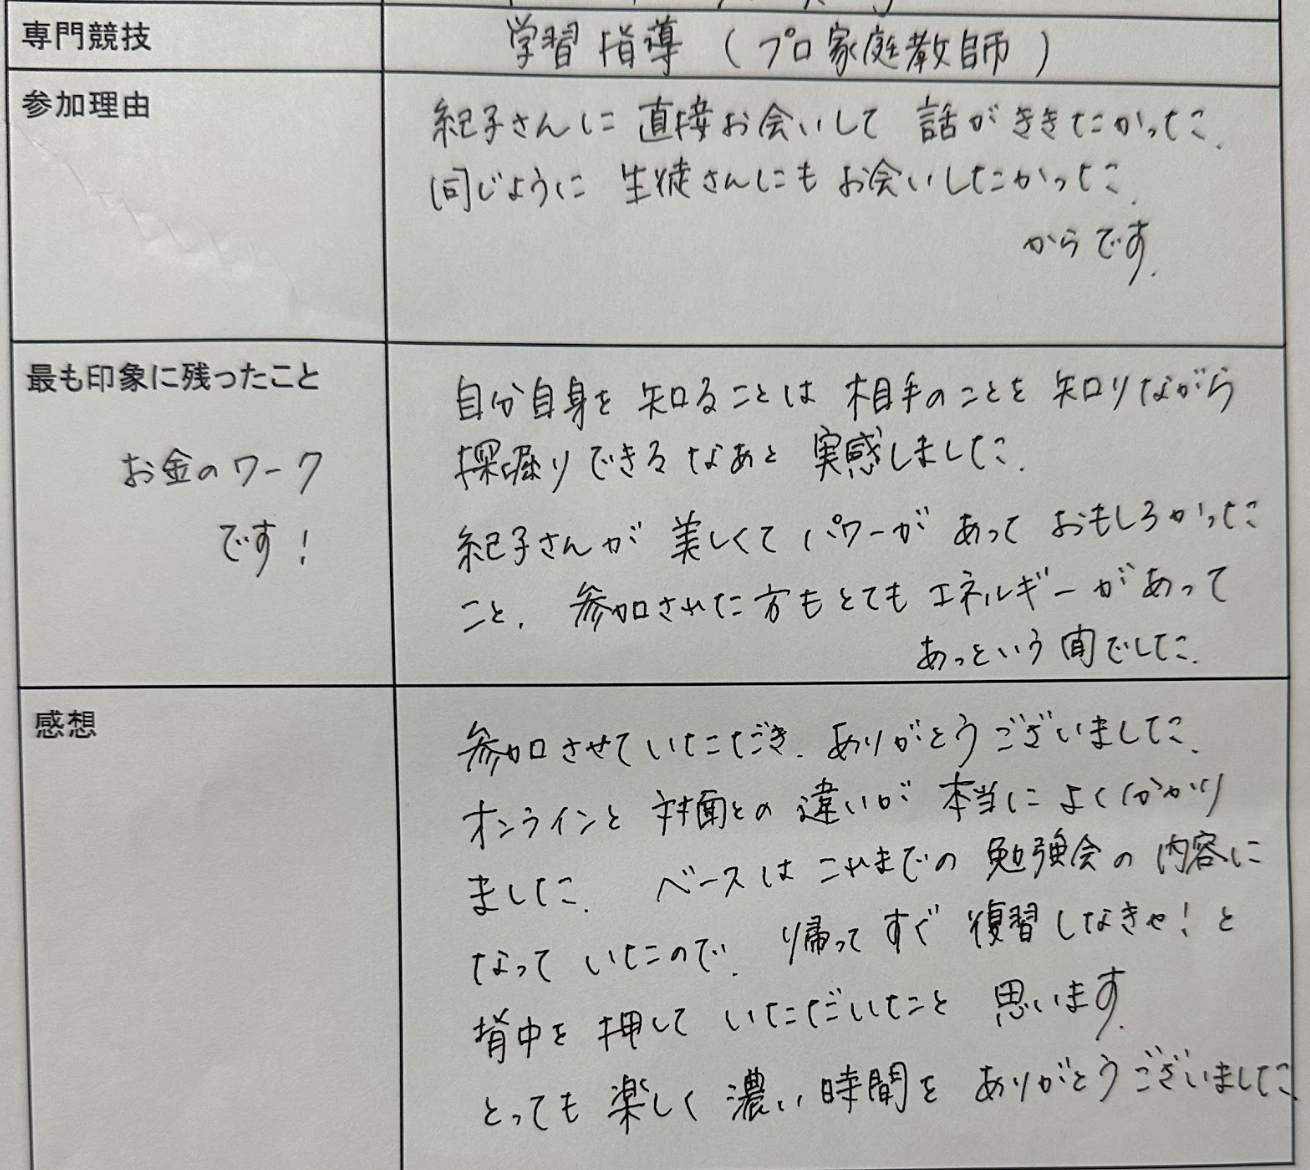 専門競技
学習指導（プロ家庭教師）
参加理由
紀子さんに直接お会いして話がききたかった.
同じように生徒さんにもお会いしたかった.
からです.
最も印象に残ったこと
お金のワーク
です！
自分自身を知ることは相手のことを知りながら
探掘りできるなあと実感しました.
紀子さんが美しくてパワーがあっておもしろかった
こと. 参加された方もとてもエネルギーがあって
あっという間でした.
感想
参加させていただき. ありがとうございました.
オンラインと対面との違いが本当によく分かり
ました. ベースはこれまでの勉強会の内容に
なっていたので. 帰ってすぐ復習しなきゃ！と
背中を押していただいたこと思います.
とっても楽しく濃い時間をありがとうございました